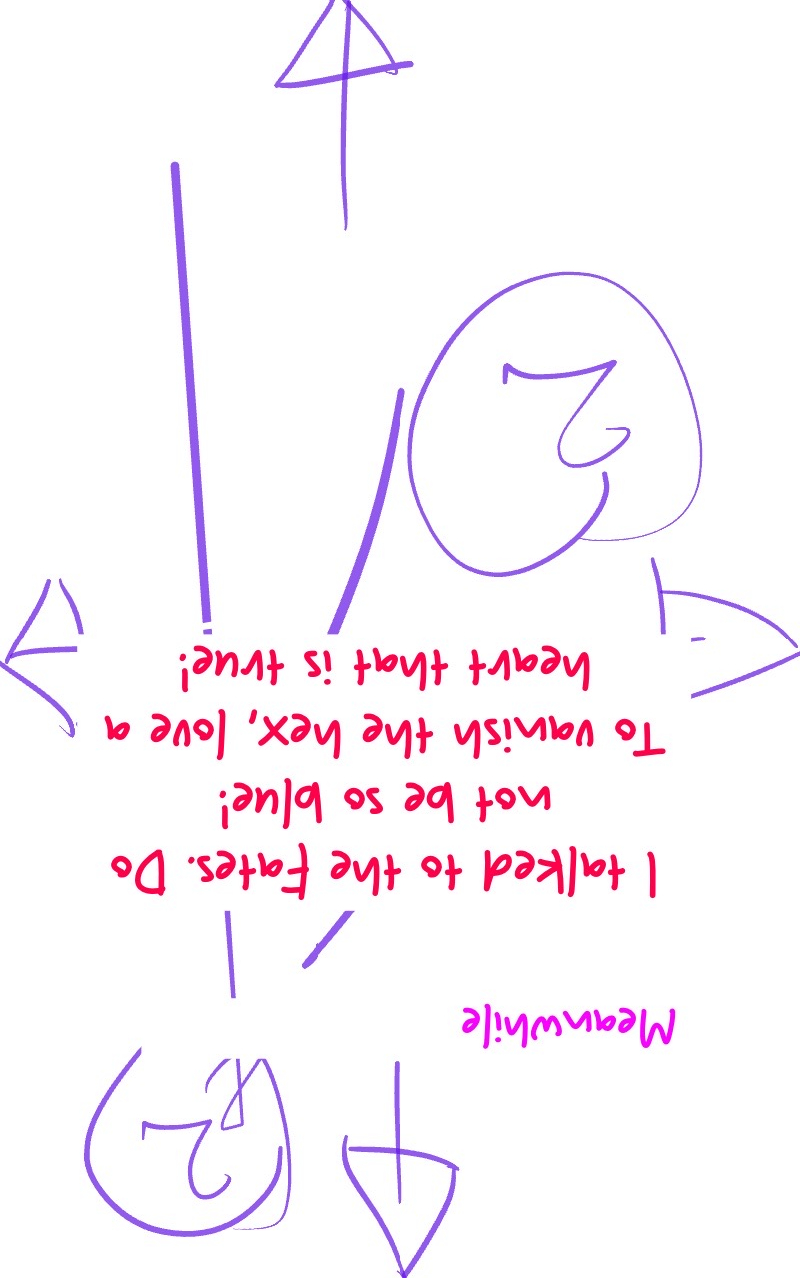 Meanwhile
I talked to the Fates. Do
not be so blue!
To vanish the hex, love a
heart that is true!
2
2